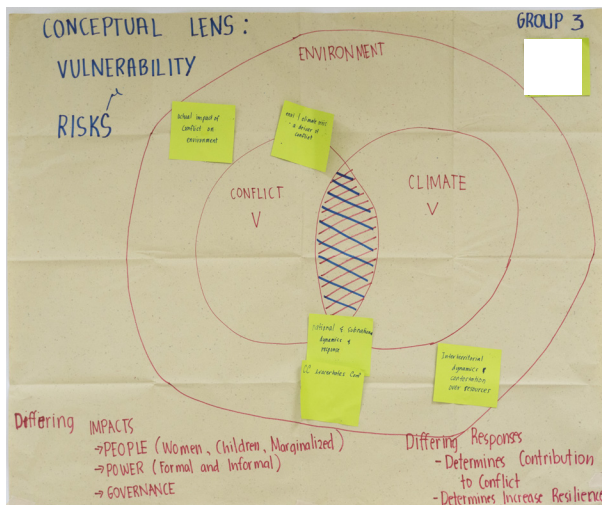 CONCEPTUAL LENS:
VULNERABILITY
RISKS
GROUP 3
ENVIRONMENT
actual impact of
conflict on
environment
a driver of
conflict
CONFLICT
V
CLIMATE
V
national & subnational
dynamics &
response
CC exacerbates Conf
Interterritorial
dynamics &
over resources
Differing IMPACTS
→PEOPLE (Women, Children, Marginalized)
→POWER (Formal and Informal)
→GOVERNANCE
Differing Responses
-Determines Contribution
to Conflict
-Determines Increase Resilience